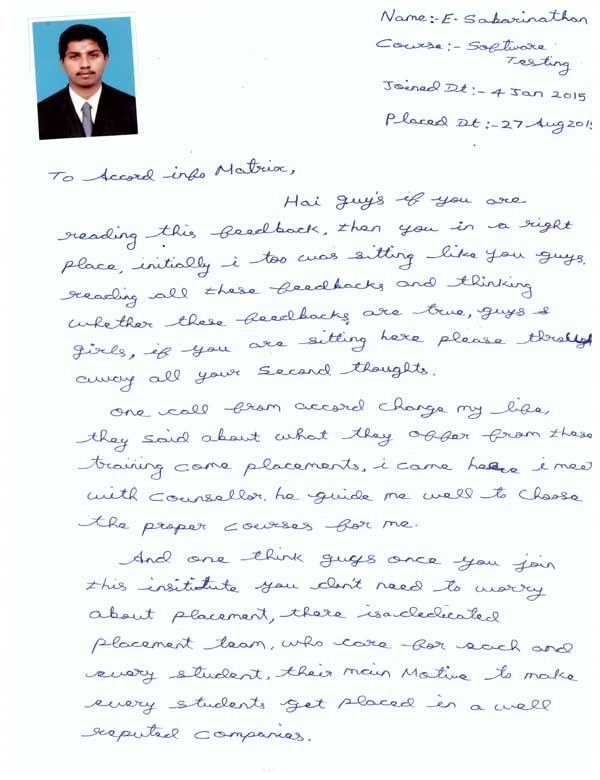 Name:- E. Sabarinathan
Course:- Software
Testing
Joined Dt:- 4 Jan 2015
Placed Dt:- 27 Aug 2015
To Accord info Matrix,
Hai guy's if you are
reading this feedback, then you in a right
place, initially i too was sitting like you guys,
reading all these feedbacks and thinking
whether these feedbacks are true, guys &
girls, if you are sitting here please through
away all your second thoughts.
One call from accord change my life,
they said about what they offer from these
training come placements, i came here i meet
with counsellor. he guide me well to choose
the proper courses for me.
And one think guys once you join
this insititute you don't need to worry
about placement, there is a dedicated
placement team, who care for each and
every student, their main Motive to make
every students get placed in a well
reputed companies.